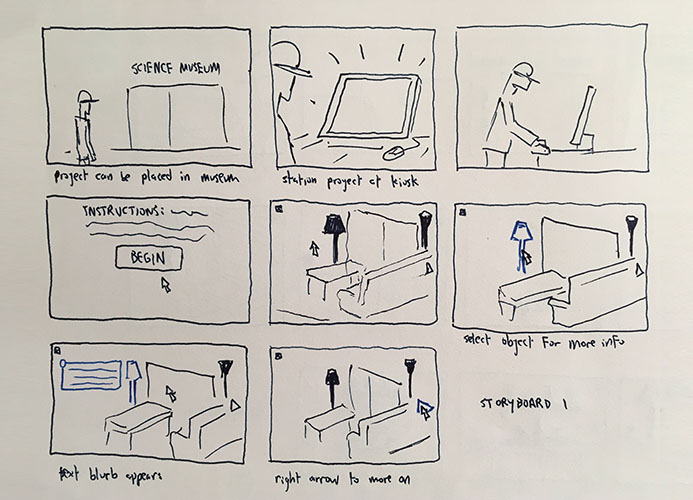 SCIENCE MUSEUM
project can be placed in museum
station project at kiosk
INSTRUCTIONS:
BEGIN
select object for more info
text blurb appears
right arrow to more on
STORYBOARD 1